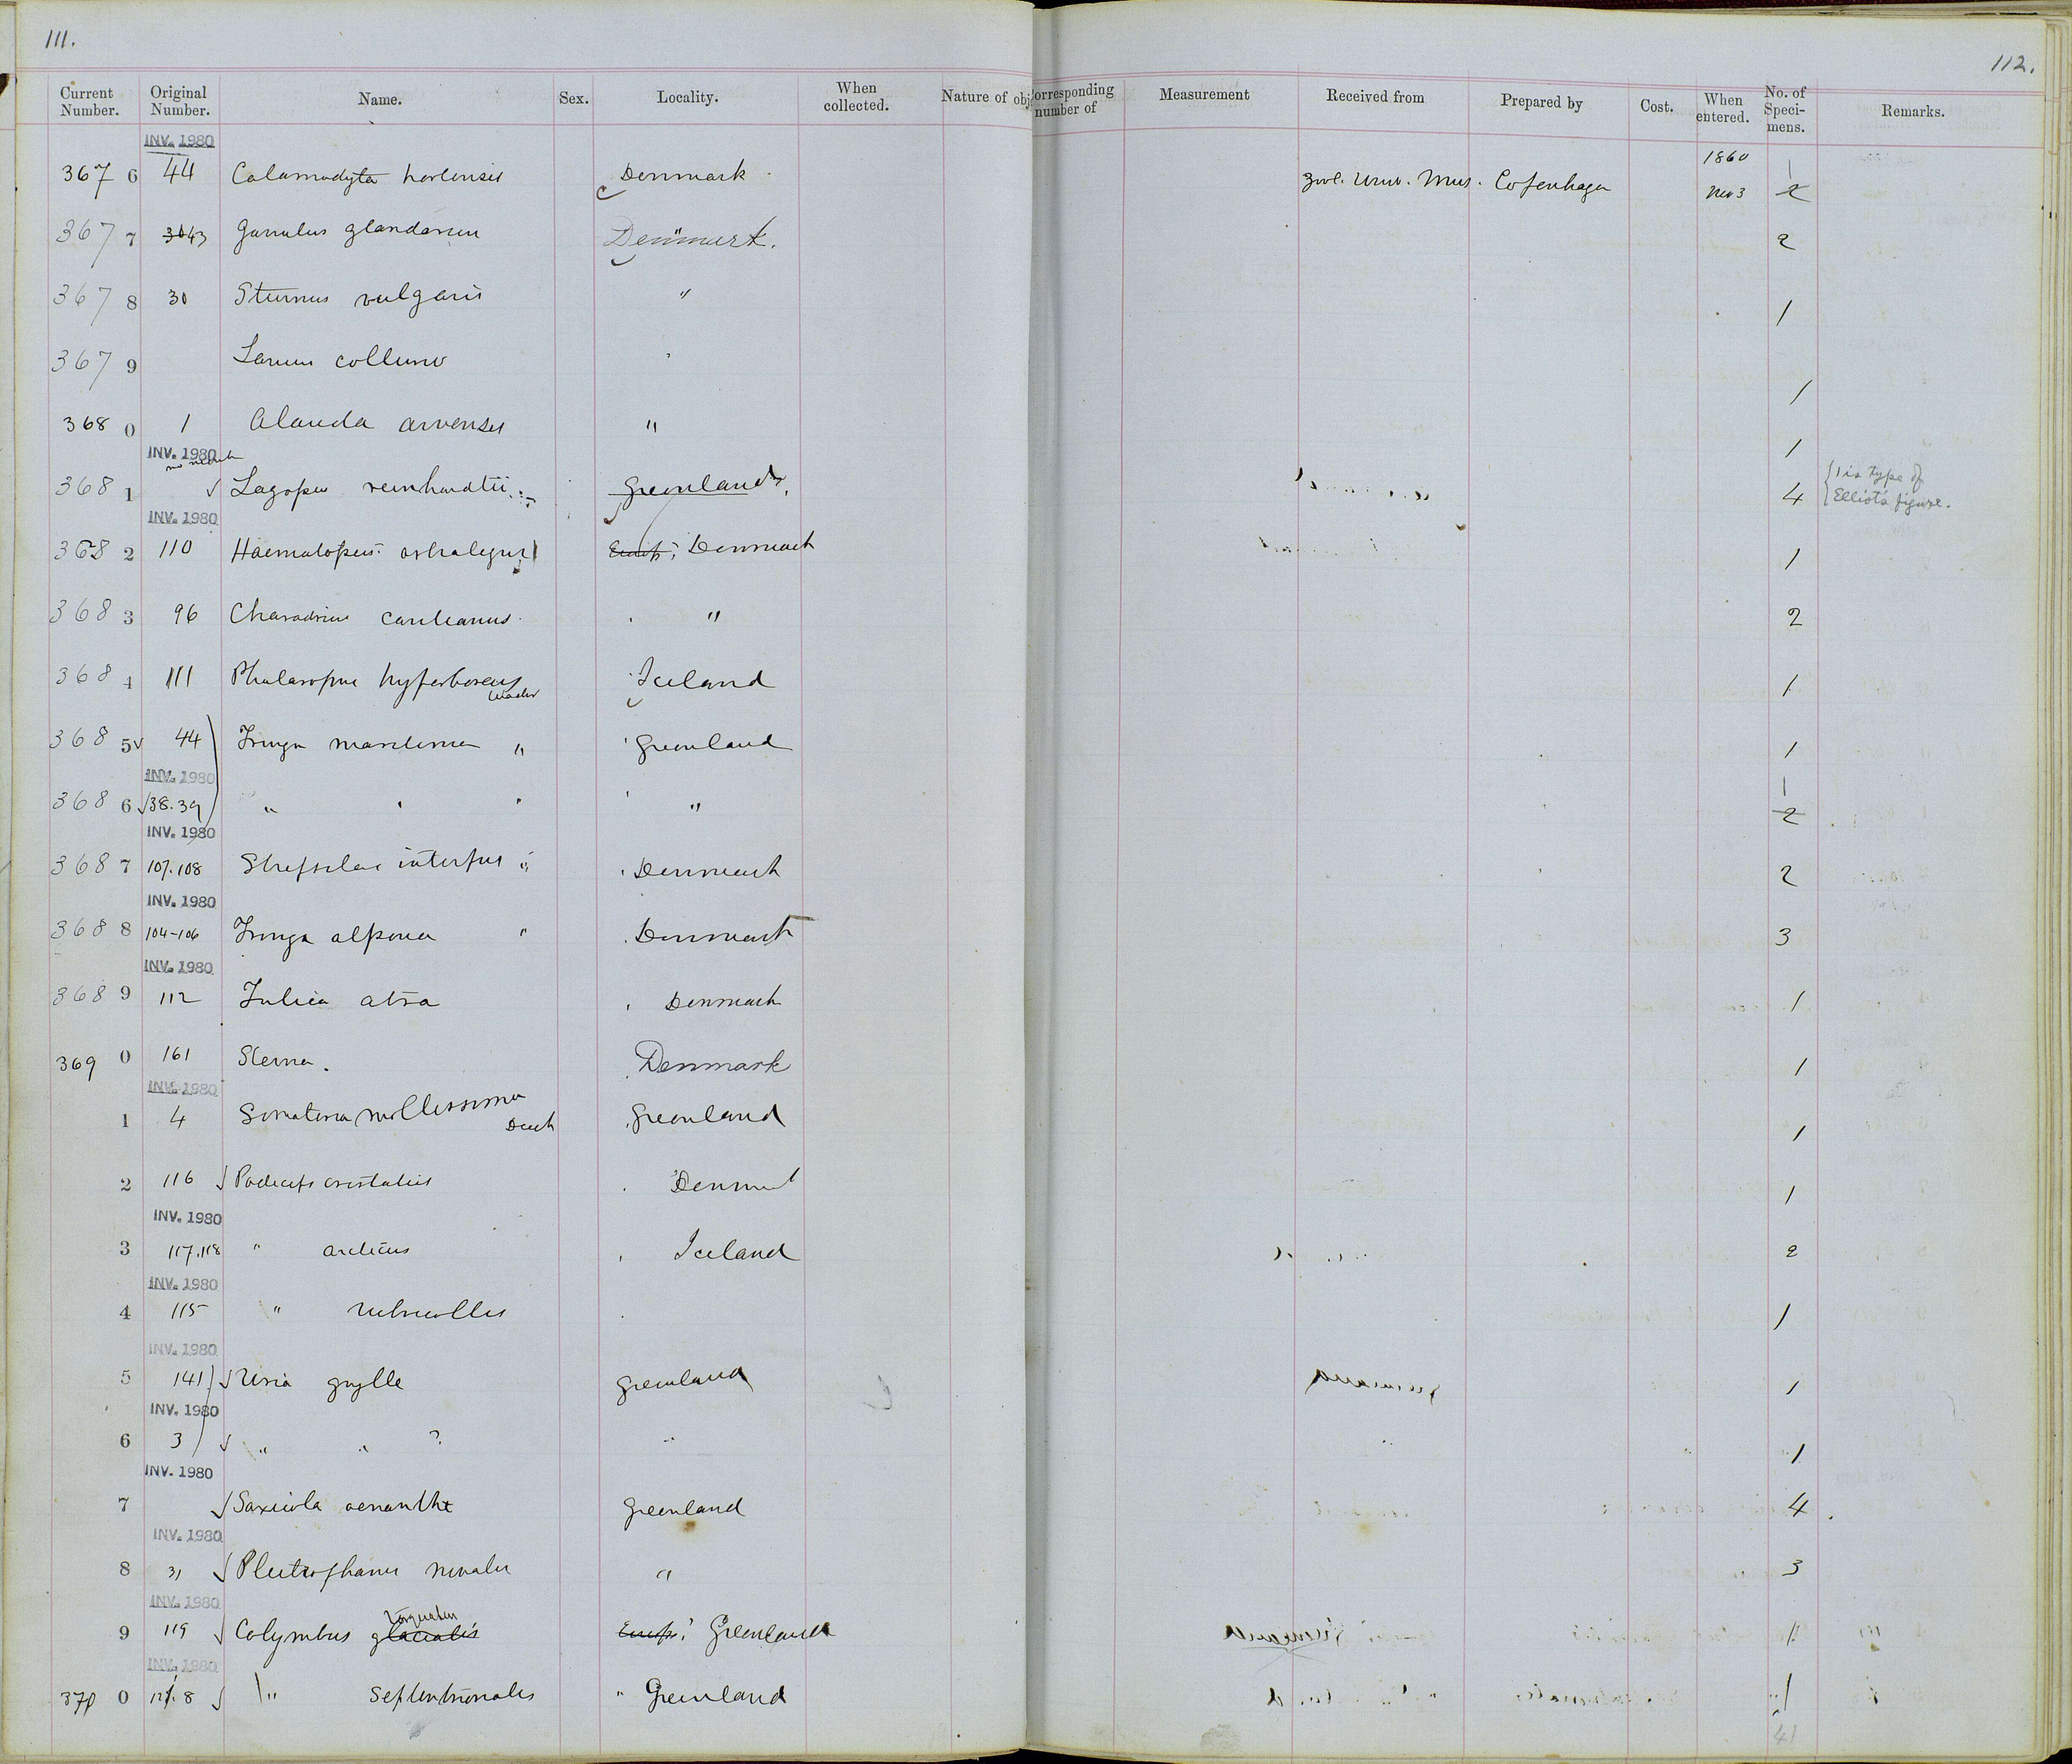 111.
112.
Current Number. Original Number. Name. Sex. Locality. When collected. Nature of obj orresponding number of Measurement Received from Prepared by Cost. When entered. No. of Speci-mens. Remarks.
INV. 1980
1860
367 6 44 Calamodyta hortensis Denmark Zool. Univ. Mus. Copenhagen Nov 3 1 2
367 7 43 Garrulus glandarius Denmark. 2
367 8 30 Sturnus vulgaris " 1
367 9 Lanius collurio 1
368 0 1 Alauda arvensis " 1
INV. 1980
368 1 Lagopus reinhardtii Greenland. 4 1 is type of Elliot's figure.
INV. 1980
368 2 110 Haematopus ostralegus Europ; Denmark 1
368 3 96 Charadrius cantianus " 2
368 4 111 Phalaropus hyperboreus Iceland 1
Wader
368 5 44 Tringa maritima " Greenland 1
INV. 1980
368 6 38.39 " " " " 1 2
INV. 1980
368 7 107.108 Strepsilas interpres " Denmark 2
INV. 1980
368 8 104-106 Tringa alpina " Denmark 3
INV. 1980
368 9 112 Fulica atra Denmark 1
369 0 161 Sterna. Denmark 1
INV. 1980
1 4 Somateria mollissima Greenland 1
Duck
2 116 Podiceps cristatus Denmark 1
INV. 1980
3 117.118 " arcticus Iceland 2
INV. 1980
4 115 " rubricollis 1
INV. 1980
5 141 Uria grylle Greenland 1
INV. 1980
6 3 " " ? " 1
INV. 1980
7 Saxicola oenanthe Greenland 4
INV. 1980
8 31 Plectrophanes nivalis " 3
INV. 1980
torquatus
9 119 Colymbus glacialis Europ; Greenland 1
INV. 1980
370 0 " septentrionalis " Greenland 1
41